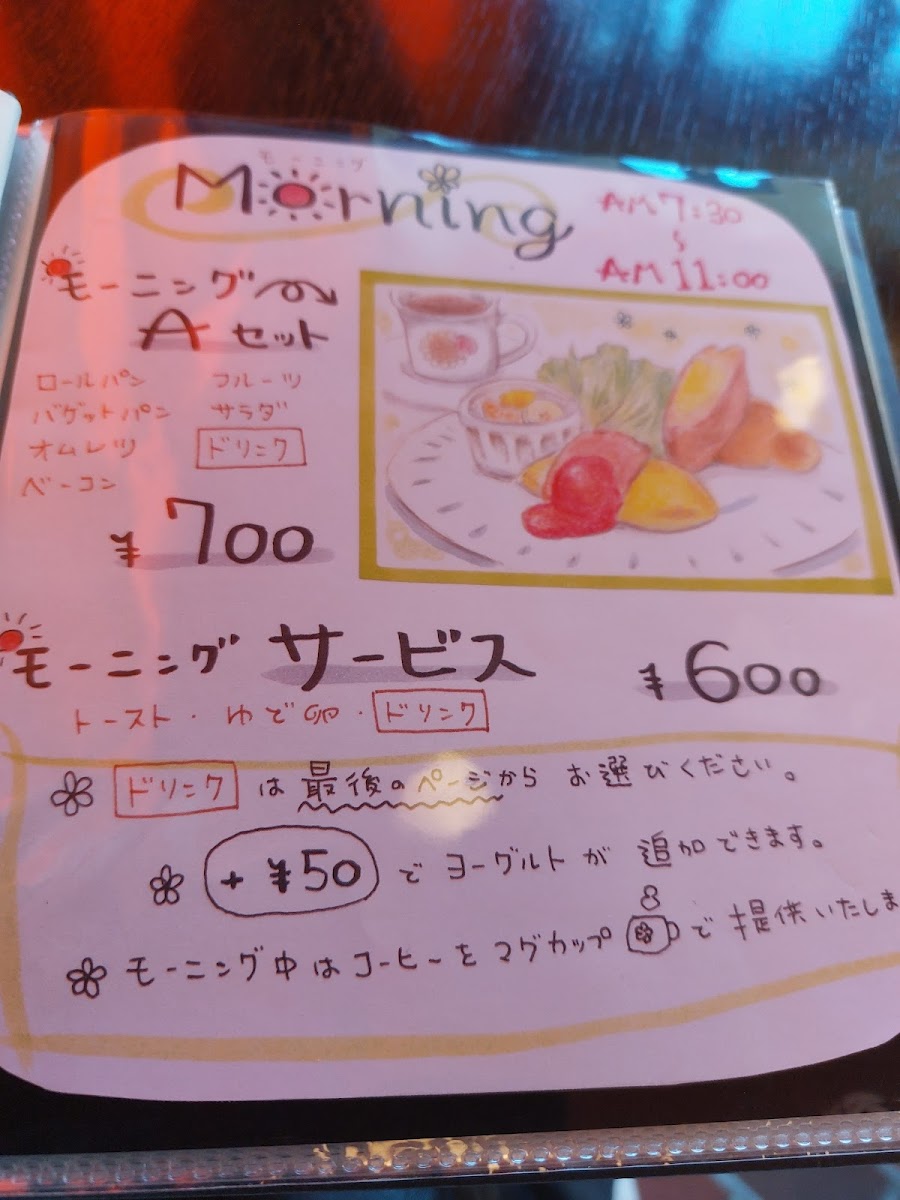 モーニング
Morning
AM 7:30
〜
AM 11:00
モーニング
Aセット
ロールパン フルーツ
バゲットパン サラダ
オムレツ ドリンク
ベーコン
¥700
モーニング サービス ¥600
トースト・ゆで卵・ドリンク
ドリンク は 最後のページから お選びください。
+¥50 で ヨーグルトが 追加できます。
モーニング中はコーヒーをマグカップ で 提供いたしま